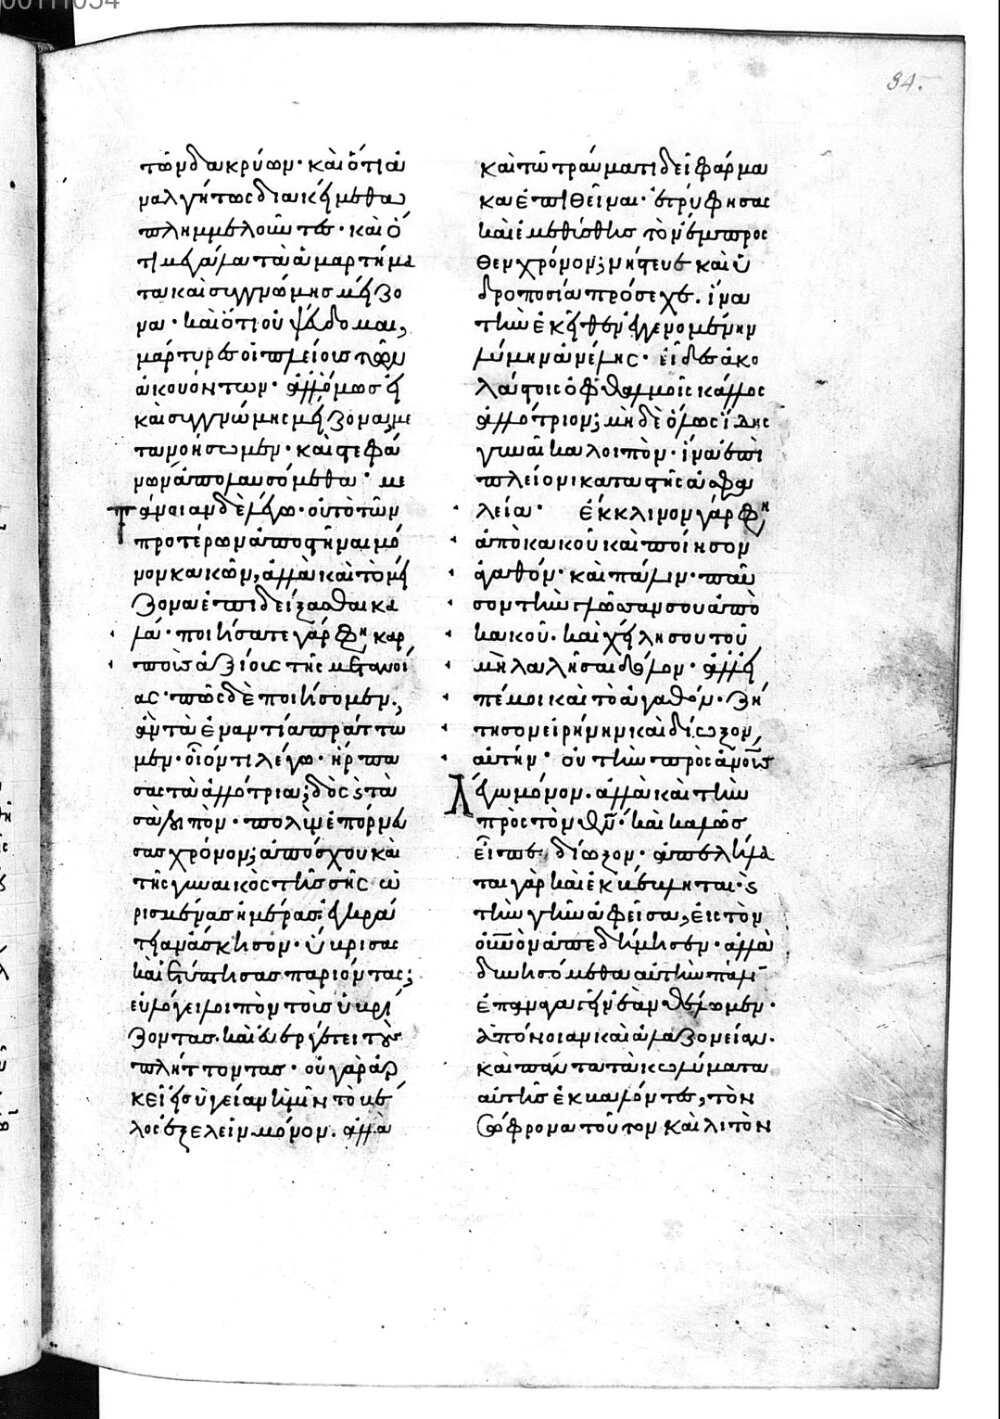 84.
τῶν δακρύων· καὶ ὅτι ἀ
ναλγήτως διακείμεθα
πλημμελοῦντες· καὶ ὅ
τι μεγάλα τὰ ἁμαρτήμα
τα καὶ συγγνώμης μείζο
να· καὶ ὅτι οὐ ψεύδομαι,
μάρτυρες οἱ πλείους τῶν
ἀκουόντων· ἀλλ' ὅμως εἰ
καὶ συγγνώμης μείζονα, με
τανοήσωμεν· καὶ στεφά
νων ἀπολαυσόμεθα· με
τάνοιαν δὲ λέγω· οὐ τὸ τῶν
προτέρων ἀποστῆναι μό
νον κακῶν, ἀλλὰ καὶ τὸ μεί
ζονα ἐπιδείξασθαι κα
λά· ποιήσατε γάρ φη καρ
ποὺς ἀξίους τῆς μετανοί
ας· πῶς δὲ ποιήσομεν;
ἂν τὰ ἐναντία πράττω
μεν· οἷόν τι λέγω· ἥρπα
σας τὰ ἀλλότρια; δὸς καὶ τὰ
σὰ λοιπόν· πολὺν ἐπόρνευ
σας χρόνον; ἀπόσχου καὶ
τῆς γυναικὸς τῆς σῆς ὡ
ρισμένας ἡμέρας· ἐγκρά
τειαν ἄσκησον· ὕβρισας
καὶ ἐτύπτησας παριόντας;
εὐλόγει λοιπὸν τοὺς ὑβρί
ζοντας· καὶ εὐεργέτει τοὺς
πλήττοντας· οὐ γὰρ ἀρ
κεῖ εἰς ὑγείαν ἡμῖν τὸ βέ
λος ἐξελεῖν μόνον· ἀλλὰ
καὶ τῷ τραύματι δεῖ φάρμα
κα ἐπιθεῖναι· ἐτρύφησας
καὶ ἐμεθύσθης τὸν ἔμπροσ
θεν χρόνον; νήστευε καὶ ὑ
δροποσίᾳ πρόσεχε· ἵνα
τὴν ἐκεῖθεν ἐγγενομένην
λύμην ἀνέλῃς· εἶδες ἀκο
λάστοις ὀφθαλμοῖς κάλλος
ἀλλότριον; μὴ δὲ ὅλως ἴδῃς
γυναῖκα λοιπόν· ἵνα ἐπὶ
πλείονι καταστῇς ἀσφα
λείᾳ· ἔκκλινον γάρ φη
ἀπὸ κακοῦ καὶ ποίησον
ἀγαθόν· καὶ πάλιν· παῦ
σον τὴν γλῶσσαν σου ἀπὸ
κακοῦ· καὶ χείλη σου τοῦ
μὴ λαλῆσαι δόλον· ἀλλ' εἰ
πέ μοι καὶ τὸ ἀγαθόν· ζή
τησον εἰρήνην καὶ δίωξον
αὐτήν· οὐ τὴν πρὸς ἀνοὺς
λέγω μόνον· ἀλλὰ καὶ τὴν
πρὸς τὸν θν· καὶ καλῶς
εἶπε, δίωξον· ἀπελήλα
ται γὰρ καὶ ἐκβέβληται· καὶ
τὴν γῆν ἀφεῖσα, εἰς τὸν
οὐνον ἀπεδήμησεν· ἀλλὰ
δυνησόμεθα αὐτὴν πάλιν
ἐπαναγαγεῖν ἐὰν θέλωμεν·
ἀπόνοιαν καὶ ἀλαζονείαν·
καὶ πάντα τὰ κωλύματα
αὐτῆς ἐκβαλόντες, τὸν
σώφρονα τοῦτον καὶ λιτὸν